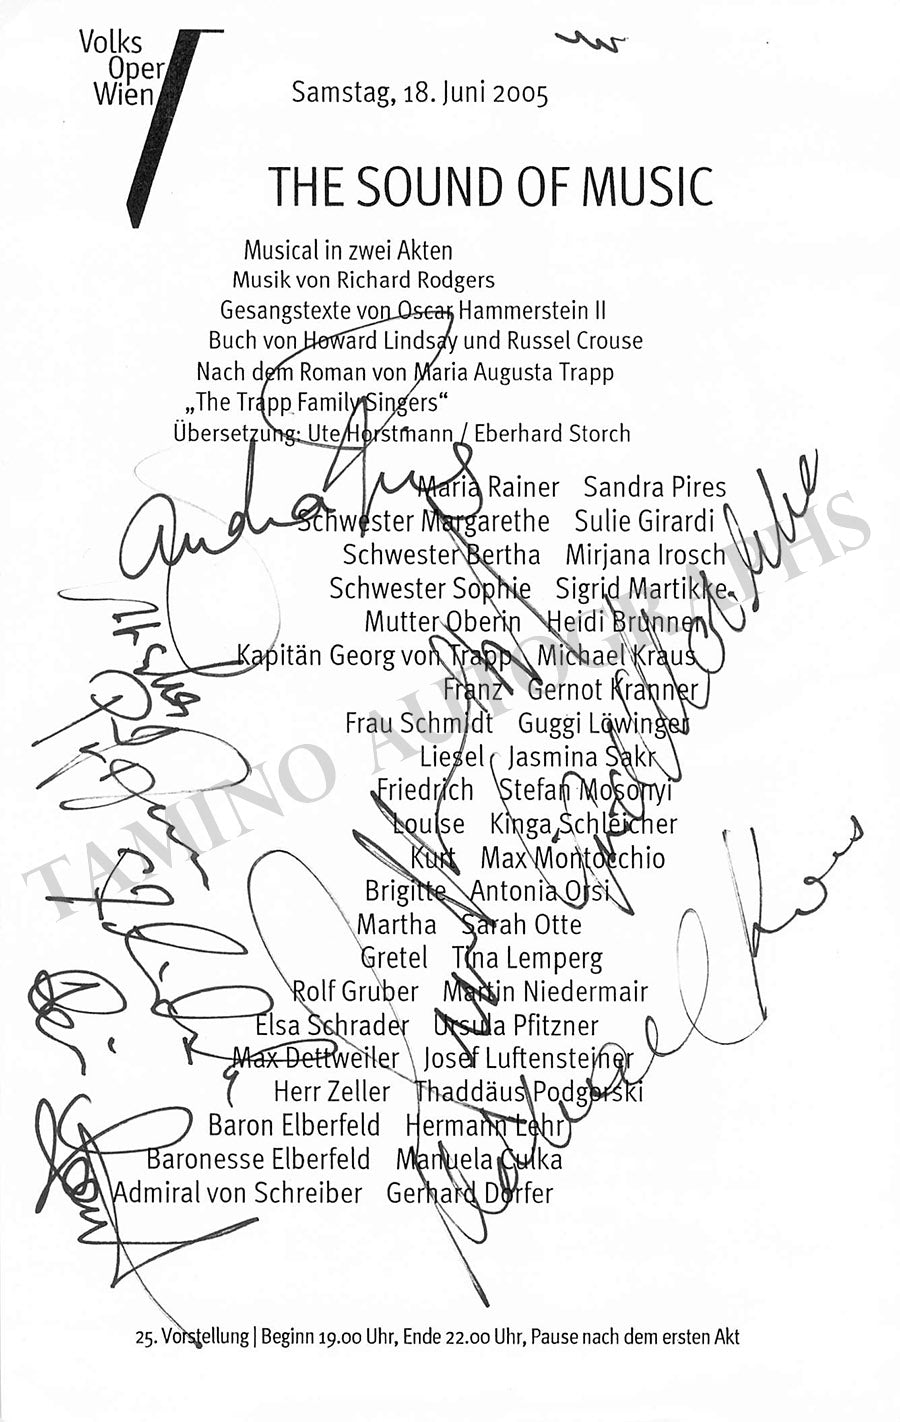 Volks
Oper
Wien
Samstag, 18. Juni 2005
THE SOUND OF MUSIC
Musical in zwei Akten
Musik von Richard Rodgers
Gesangstexte von Oscar Hammerstein II
Buch von Howard Lindsay und Russel Crouse
Nach dem Roman von Maria Augusta Trapp
„The Trapp Family Singers“
Übersetzung: Ute Horstmann / Eberhard Storch
Maria Rainer Sandra Pires
Schwester Margarethe Sulie Girardi
Schwester Bertha Mirjana Irosch
Schwester Sophie Sigrid Martikke
Mutter Oberin Heidi Brunner
Kapitän Georg von Trapp Michael Kraus
Franz Gernot Kranner
Frau Schmidt Guggi Löwinger
Liesel Jasmina Sakr
Friedrich Stefan Mosonyi
Louise Kinga Schleicher
Kurt Max Montocchio
Brigitte Antonia Orsi
Martha Sarah Otte
Gretel Tina Lemperg
Rolf Gruber Martin Niedermair
Elsa Schrader Ursula Pfitzner
Max Dettweiler Josef Luftensteiner
Herr Zeller Thaddäus Podgorski
Baron Elberfeld Hermann Lehr
Baronesse Elberfeld Manuela Culka
Admiral von Schreiber Gerhard Dorfer
25. Vorstellung | Beginn 19.00 Uhr, Ende 22.00 Uhr, Pause nach dem ersten Akt
Sandra Pires
Michael Kraus
TAMINO AUTOGRAPHS